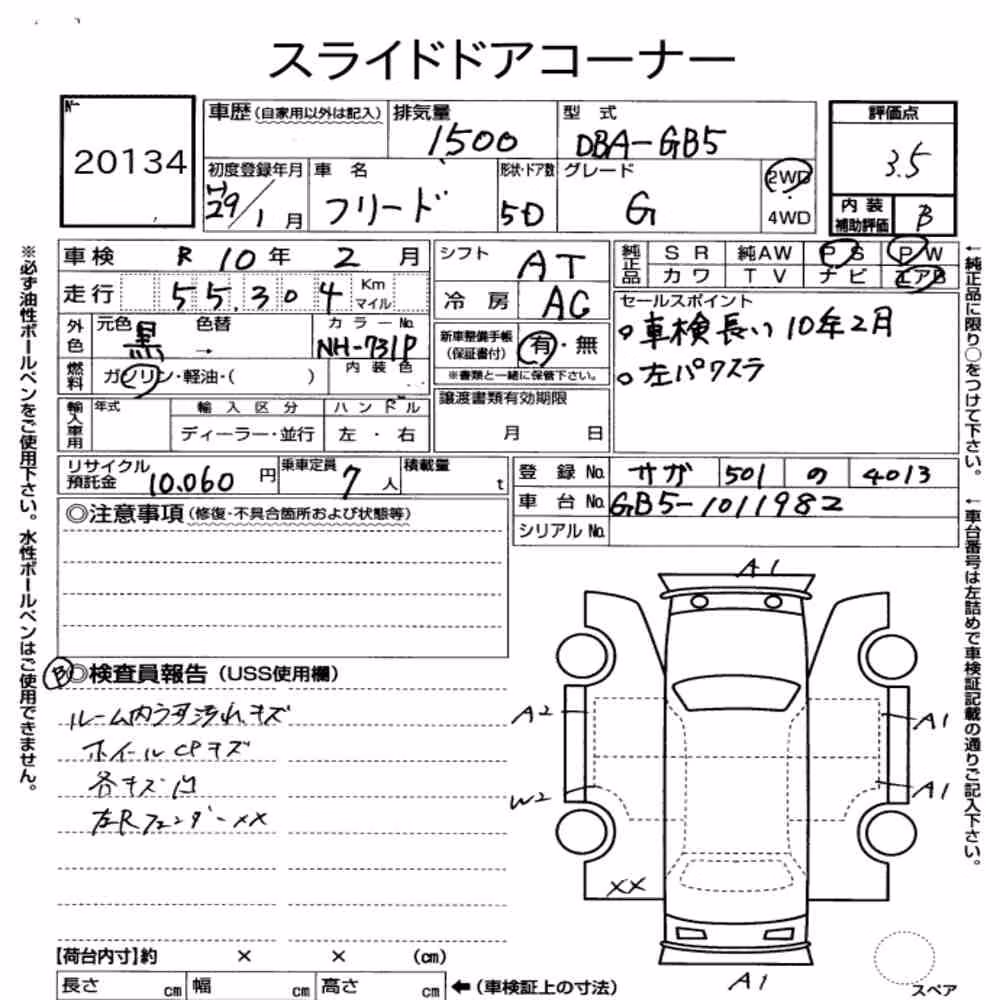 スライドドアコーナー
No.
20134
車歴(自家用以外は記入)
排気量
1500
型 式
DBA-GB5
評価点
3.5
初度登録年月
H29/1月
車 名
フリード
形状・ドア数
5D
グレード
G
2WD
4WD
内 装
補助評価
B
車検 R 10年 2 月
シフト AT
純正品
SR 純AW PS PW
カワ TV ナビ エアB
走行 55,304 Km マイル
冷 房 AC
セールスポイント
○車検長い 10年2月
○左パワスラ
外色
元色 黒
色替 →
カラーNo.
NH-731P
新車整備手帳
(保証書付)
有・無
※書類と一緒に保管下さい。
燃料
ガソリン・軽油・( )
内装色
輸入車用
年式
輸入区分
ディーラー・並行
ハンドル
左・右
譲渡書類有効期限
月 日
リサイクル
預託金
10.060 円
乗車定員
7 人
積載量
t
登録No. サガ 501 の 4013
車台No. GB5-1011982
シリアルNo.
◎注意事項(修復・不具合箇所および状態等)
B
◎検査員報告(USS使用欄)
ルーム内うす汚れキズ
ホイールCPキズ
各キズ凹
左Rフェンダーxx
A1
A2
A1
W2
A1
xx
A1
スペア
【荷台内寸】約 × × (cm)
長さ cm 幅 cm 高さ cm ←(車検証上の寸法)
※必ず油性ボールペンをご使用下さい。水性ボールペンはご使用できません。
←純正品に限り○をつけて下さい。
←車台番号は左詰めで車検証記載の通りご記入下さい。